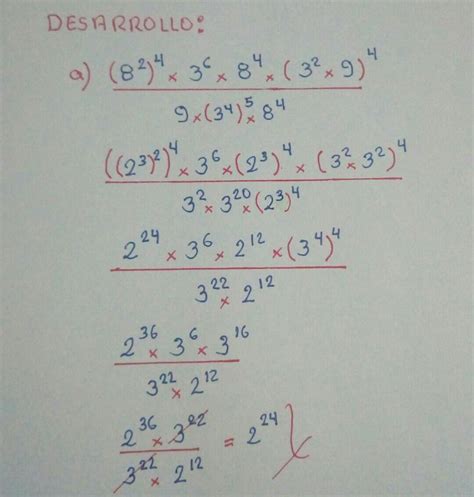 DESARROLLO:
a) (8²)⁴ × 3⁶ × 8⁴ × (3² × 9)⁴
9 × (3⁴)⁵ × 8⁴
((2³)²)⁴ × 3⁶ × (2³)⁴ × (3² × 3²)⁴
3² × 3²⁰ × (2³)⁴
2²⁴ × 3⁶ × 2¹² × (3⁴)⁴
3²² × 2¹²
2³⁶ × 3⁶ × 3¹⁶
3²² × 2¹²
2³⁶ × 3²² = 2²⁴
3²² × 2¹²